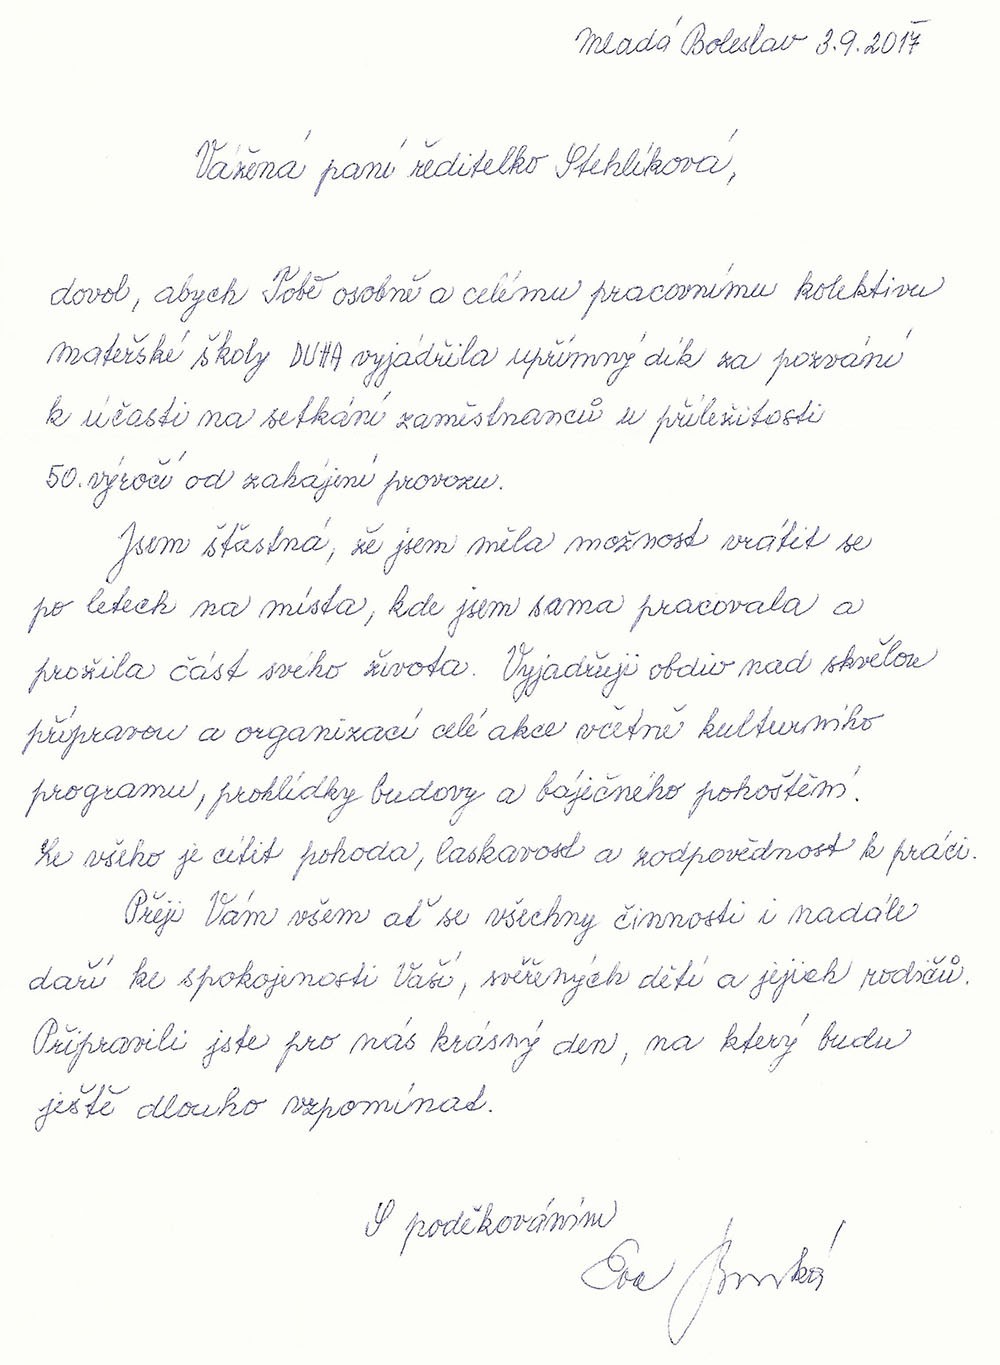 Mladá Boleslav 3.9.2017
Vážená paní ředitelko Stehlíková,
dovol, abych Tobě osobně a celému pracovnímu kolektivu
mateřské školy DUHA vyjádřila upřímný dík za pozvání
k účasti na setkání zaměstnanců u příležitosti
50. výročí od zahájení provozu.
Jsem šťastná, že jsem měla možnost vrátit se
po letech na místa, kde jsem sama pracovala a
prožila část svého života. Vyjadřuji obdiv nad skvělou
přípravou a organizací celé akce včetně kulturního
programu, prohlídky budovy a báječného pohoštění.
Ze všeho je cítit pohoda, laskavost a zodpovědnost k práci.
Přeji Vám všem ať se všechny činnosti i nadále
daří ke spokojenosti Vaší, svěřených dětí a jejich rodičů.
Připravili jste pro nás krásný den, na který budu
ještě dlouho vzpomínat.
S poděkováním
Eva